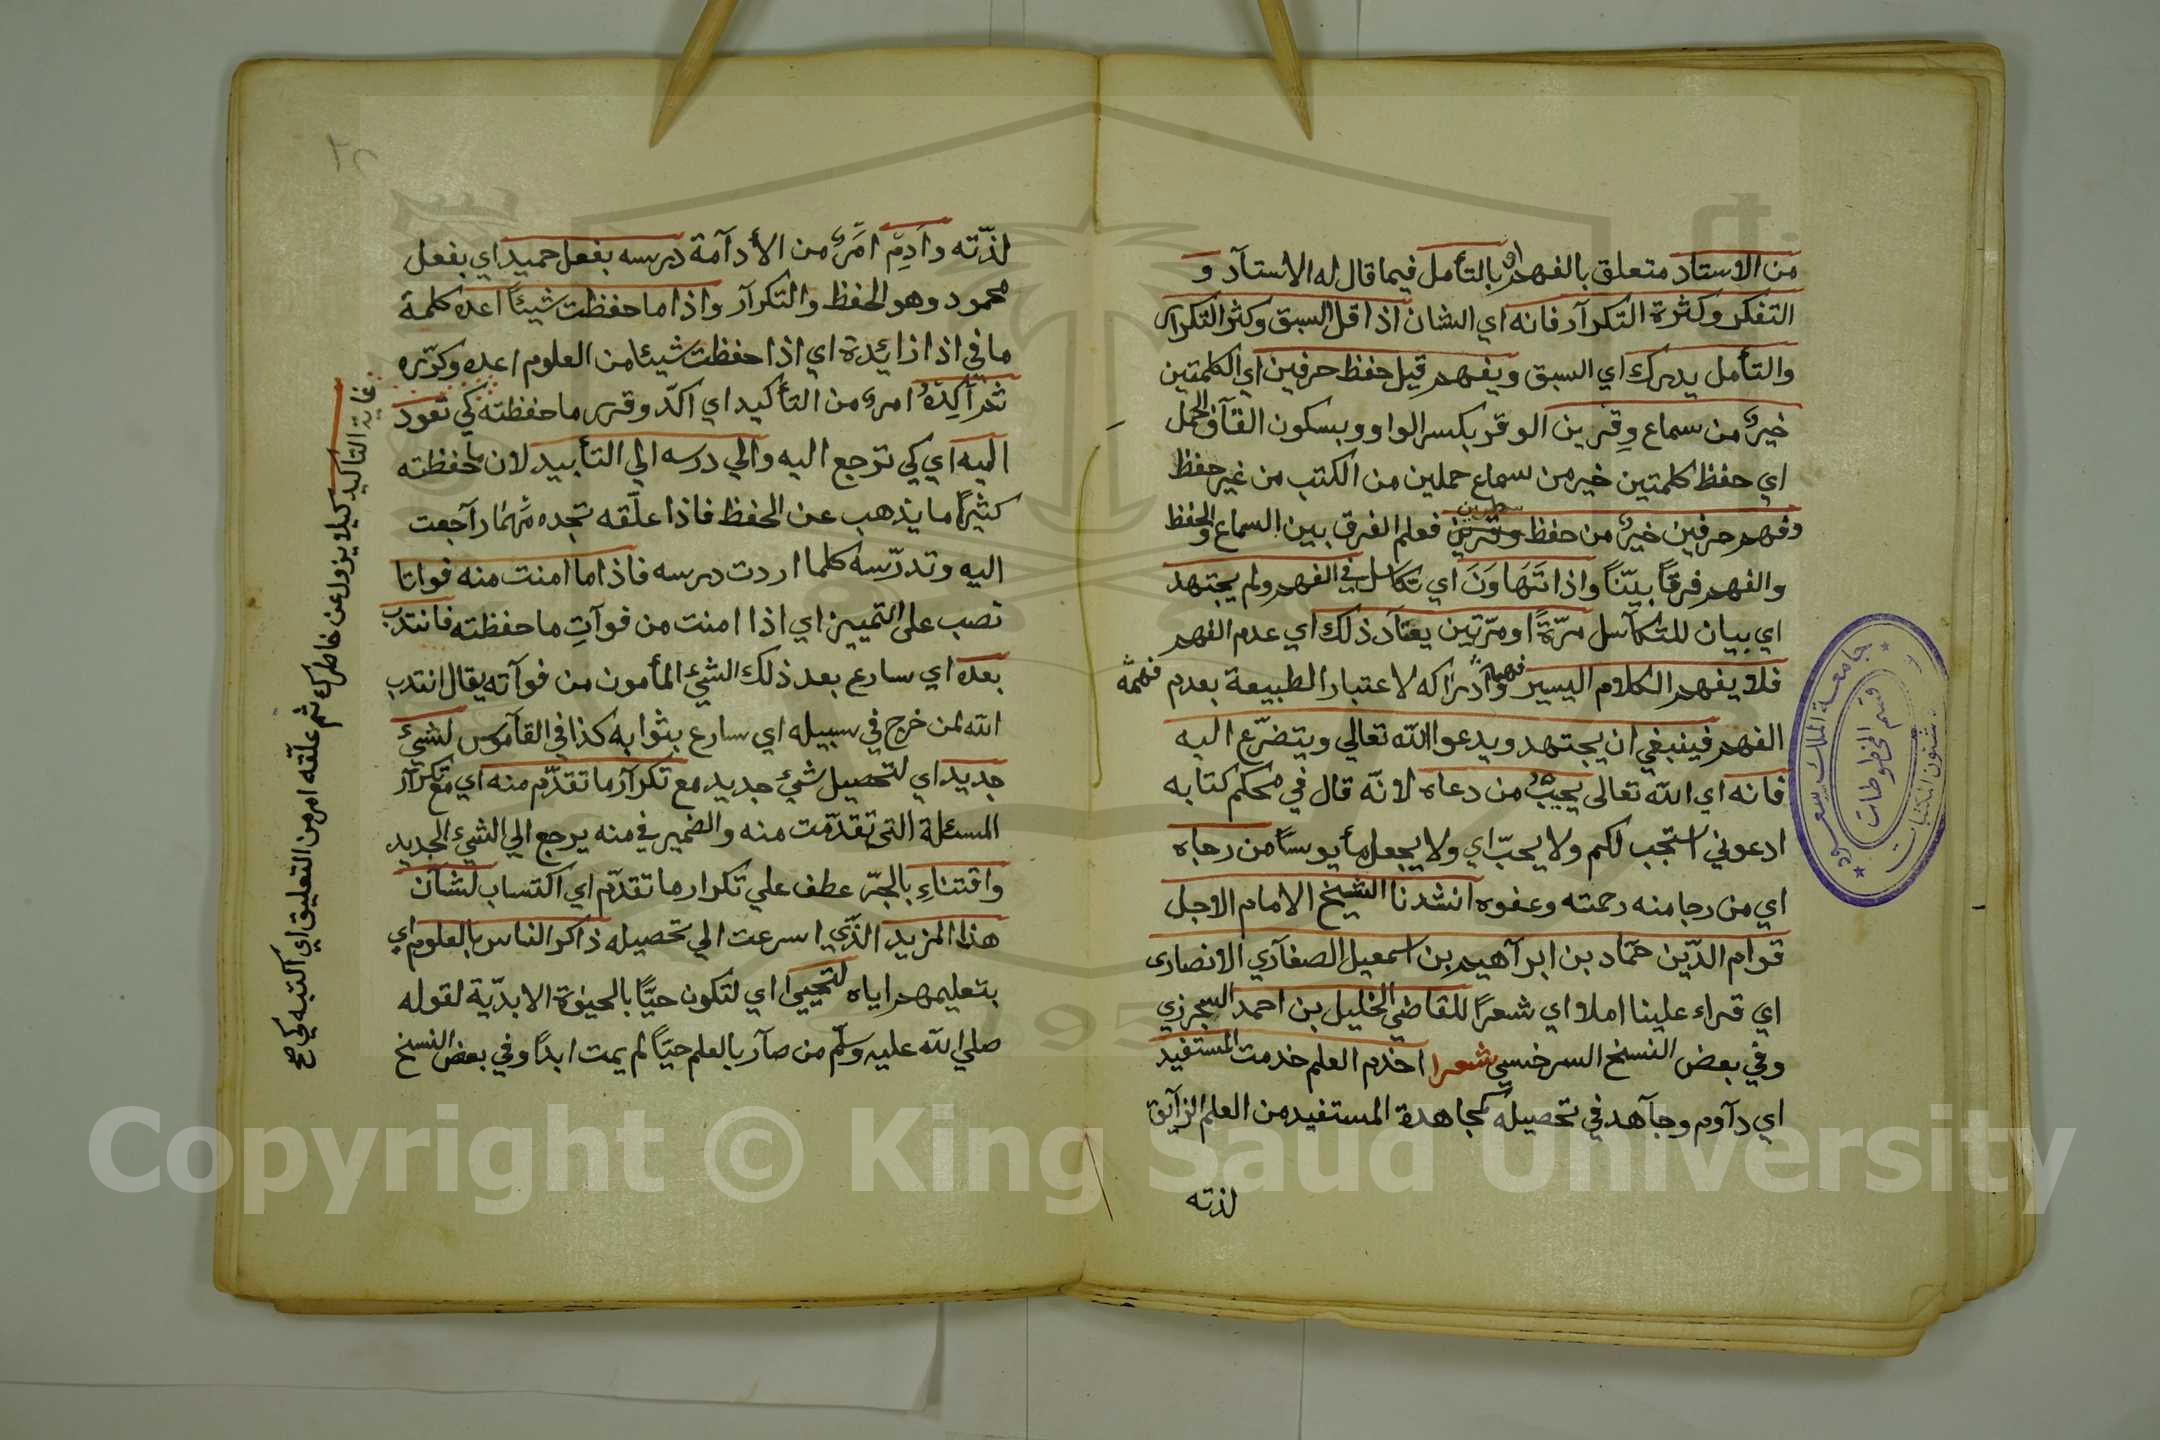 من الاستاد متعلق بالفهم او بالتأمل فيما قال له الاستاد و
التفكر وكثرة التكرار فانه اي الشان اذا قل السبق وكثر التكرار
والتأمل يدرك اي السبق ويفهم قيل حفظ حرفين اي الكلمتين
خير من سماع وقرين الوقر بكسر الواو وبسكون القاف الحمل
اي حفظ كلمتين خير من سماع حملين من الكتب من غير حفظ
وفهم حرفين خير من حفظ وقرين سطرين فعلم الفرق بين السماع والحفظ
والفهم فرقاً بيّناً واذا تَهَاوَنَ اي تكاسل في الفهم ولم يجتهد
اي بيان للتكاسل مرّةً او مرّتين يعتاد ذلك اي عدم الفهم
فلا يفهم الكلام اليسير فهمه وادراكه لاعتبار الطبيعة بعدم فهمه
الفهم فينبغي ان يجتهد ويدعوا الله تعالي ويتضرّع اليه
فانه اي الله تعالى يجيب من دعاه لانّه قال في محكم كتابه
ادعوني استجب لكم ولا يخيّب اي ولا يجعل مأيوساً من رجاه
اي من رجا منه رحمته وعفوه انشدنا الشيخ الامام الاجل
قوام الدّين حمّاد بن ابراهيم بن اسمعيل الصفاري الانصارى
اي قراء علينا املاء اي شعرًا للقاضي الخليل بن احمد السجرزي
وفي بعض النسخ السرخسي شعرا اخدم العلم خدمت المستفيد
اي داوم وجاهد في تحصيله كمجاهدة المستفيد من العلم الزايق
لذته
لذّته وادِمْ امر من الأدامة درسه بفعل حميد اي بفعل
محمود وهو الحفظ والتكرار واذا ما حفظت شيئاً اعده كلمة
ما في اذا زائدة اي اذا حفظت شيئا من العلوم اعده وكرّره
ثم أكِّدْهُ امر من التأكيد اي اكّد وقرر ما حفظته كي تعود
اليه اي كي ترجع اليه والي درسه الي التأبيد لان ما حفظته
كثيرًا ما يذهب عن الحفظ فاذا علّقه تجده مهما راجعت
اليه وتدرّسه كلما اردت درسه فاذا ما امنت منه فواتا
نصب على التمييز اي اذا امنت من فواتِ ما حفظته فانتدب
بعده اي سارع بعد ذلك الشيء المأمون من فواته يقال انتدب
الله لمن خرج في سبيله اي سارع بثوابه كذا في القاموس لشيء
جديد اي لتحصيل شيء جديد مع تكرار ما تقدّم منه اي مع تكرار
المسئلة التي تقدّمت منه والضمير في منه يرجع الي الشيء الجديد
واقتناءِ بالجرّ عطف علي تكرار ما تقدّم اي اكتساب لشان
هذا المزيد الذّي اسرعت الي تحصيله ذاكر الناس بالعلوم اي
بتعليمهم اياه لتحيى اي لتكون حيّا بالحيوة الابديّة لقوله
صلي الله عليه وسلّم من صار بالعلم حيّا لم يمت ابدًا وفي بعض النسخ
غاية التاكيد كيلا يزول عن خاطرك ثم علّقه امر من التعليق اي اكتبه كي صح
جامعة الملك سعود
قسم المخطوطات
شئون المكتبات
Copyright © King Saud University